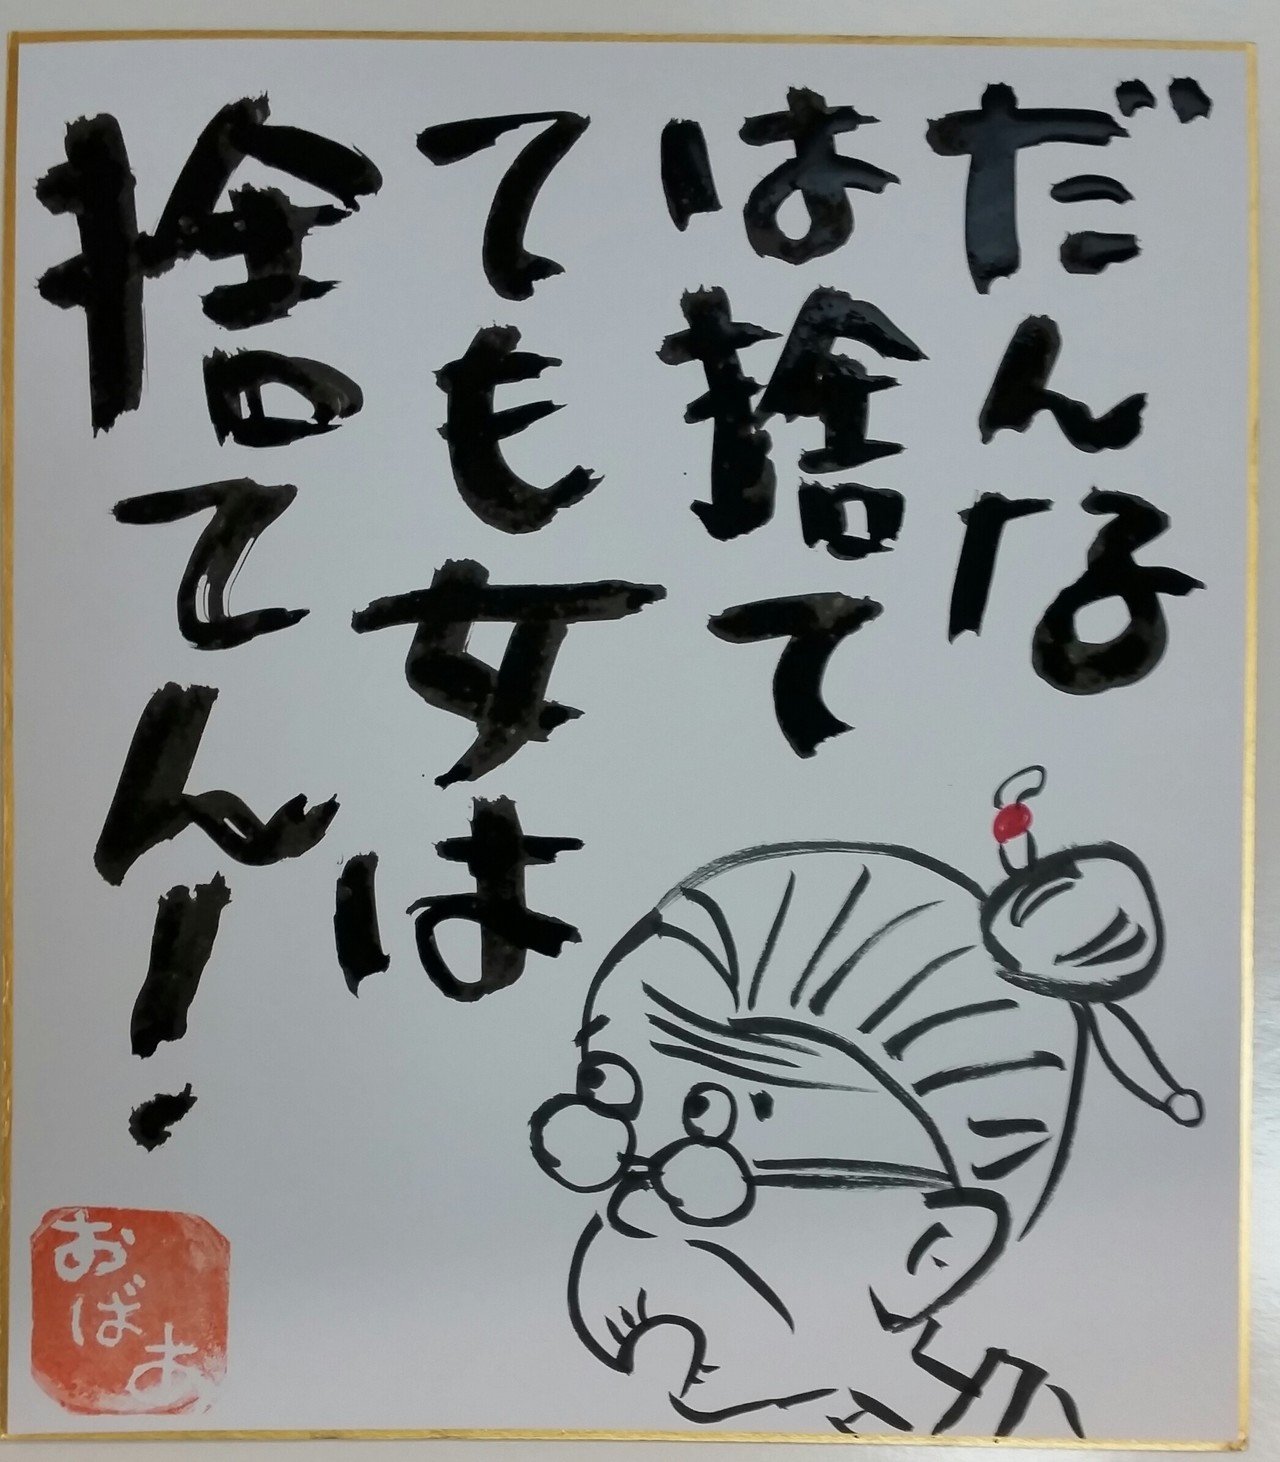 だんな
は捨て
ても女は
捨てん!
おばあ